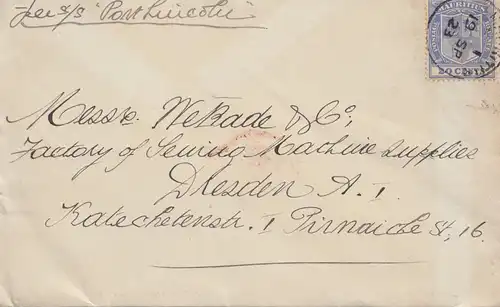 per s/s "Port Lincoln"
MAURITIUS
SP
23
20 CENTS
Messrs. Wekade & Co,
Factory of Sewing Machine Supplies
Dresden A. I.
Katechetenstr. I Pirnaiche St, 16.